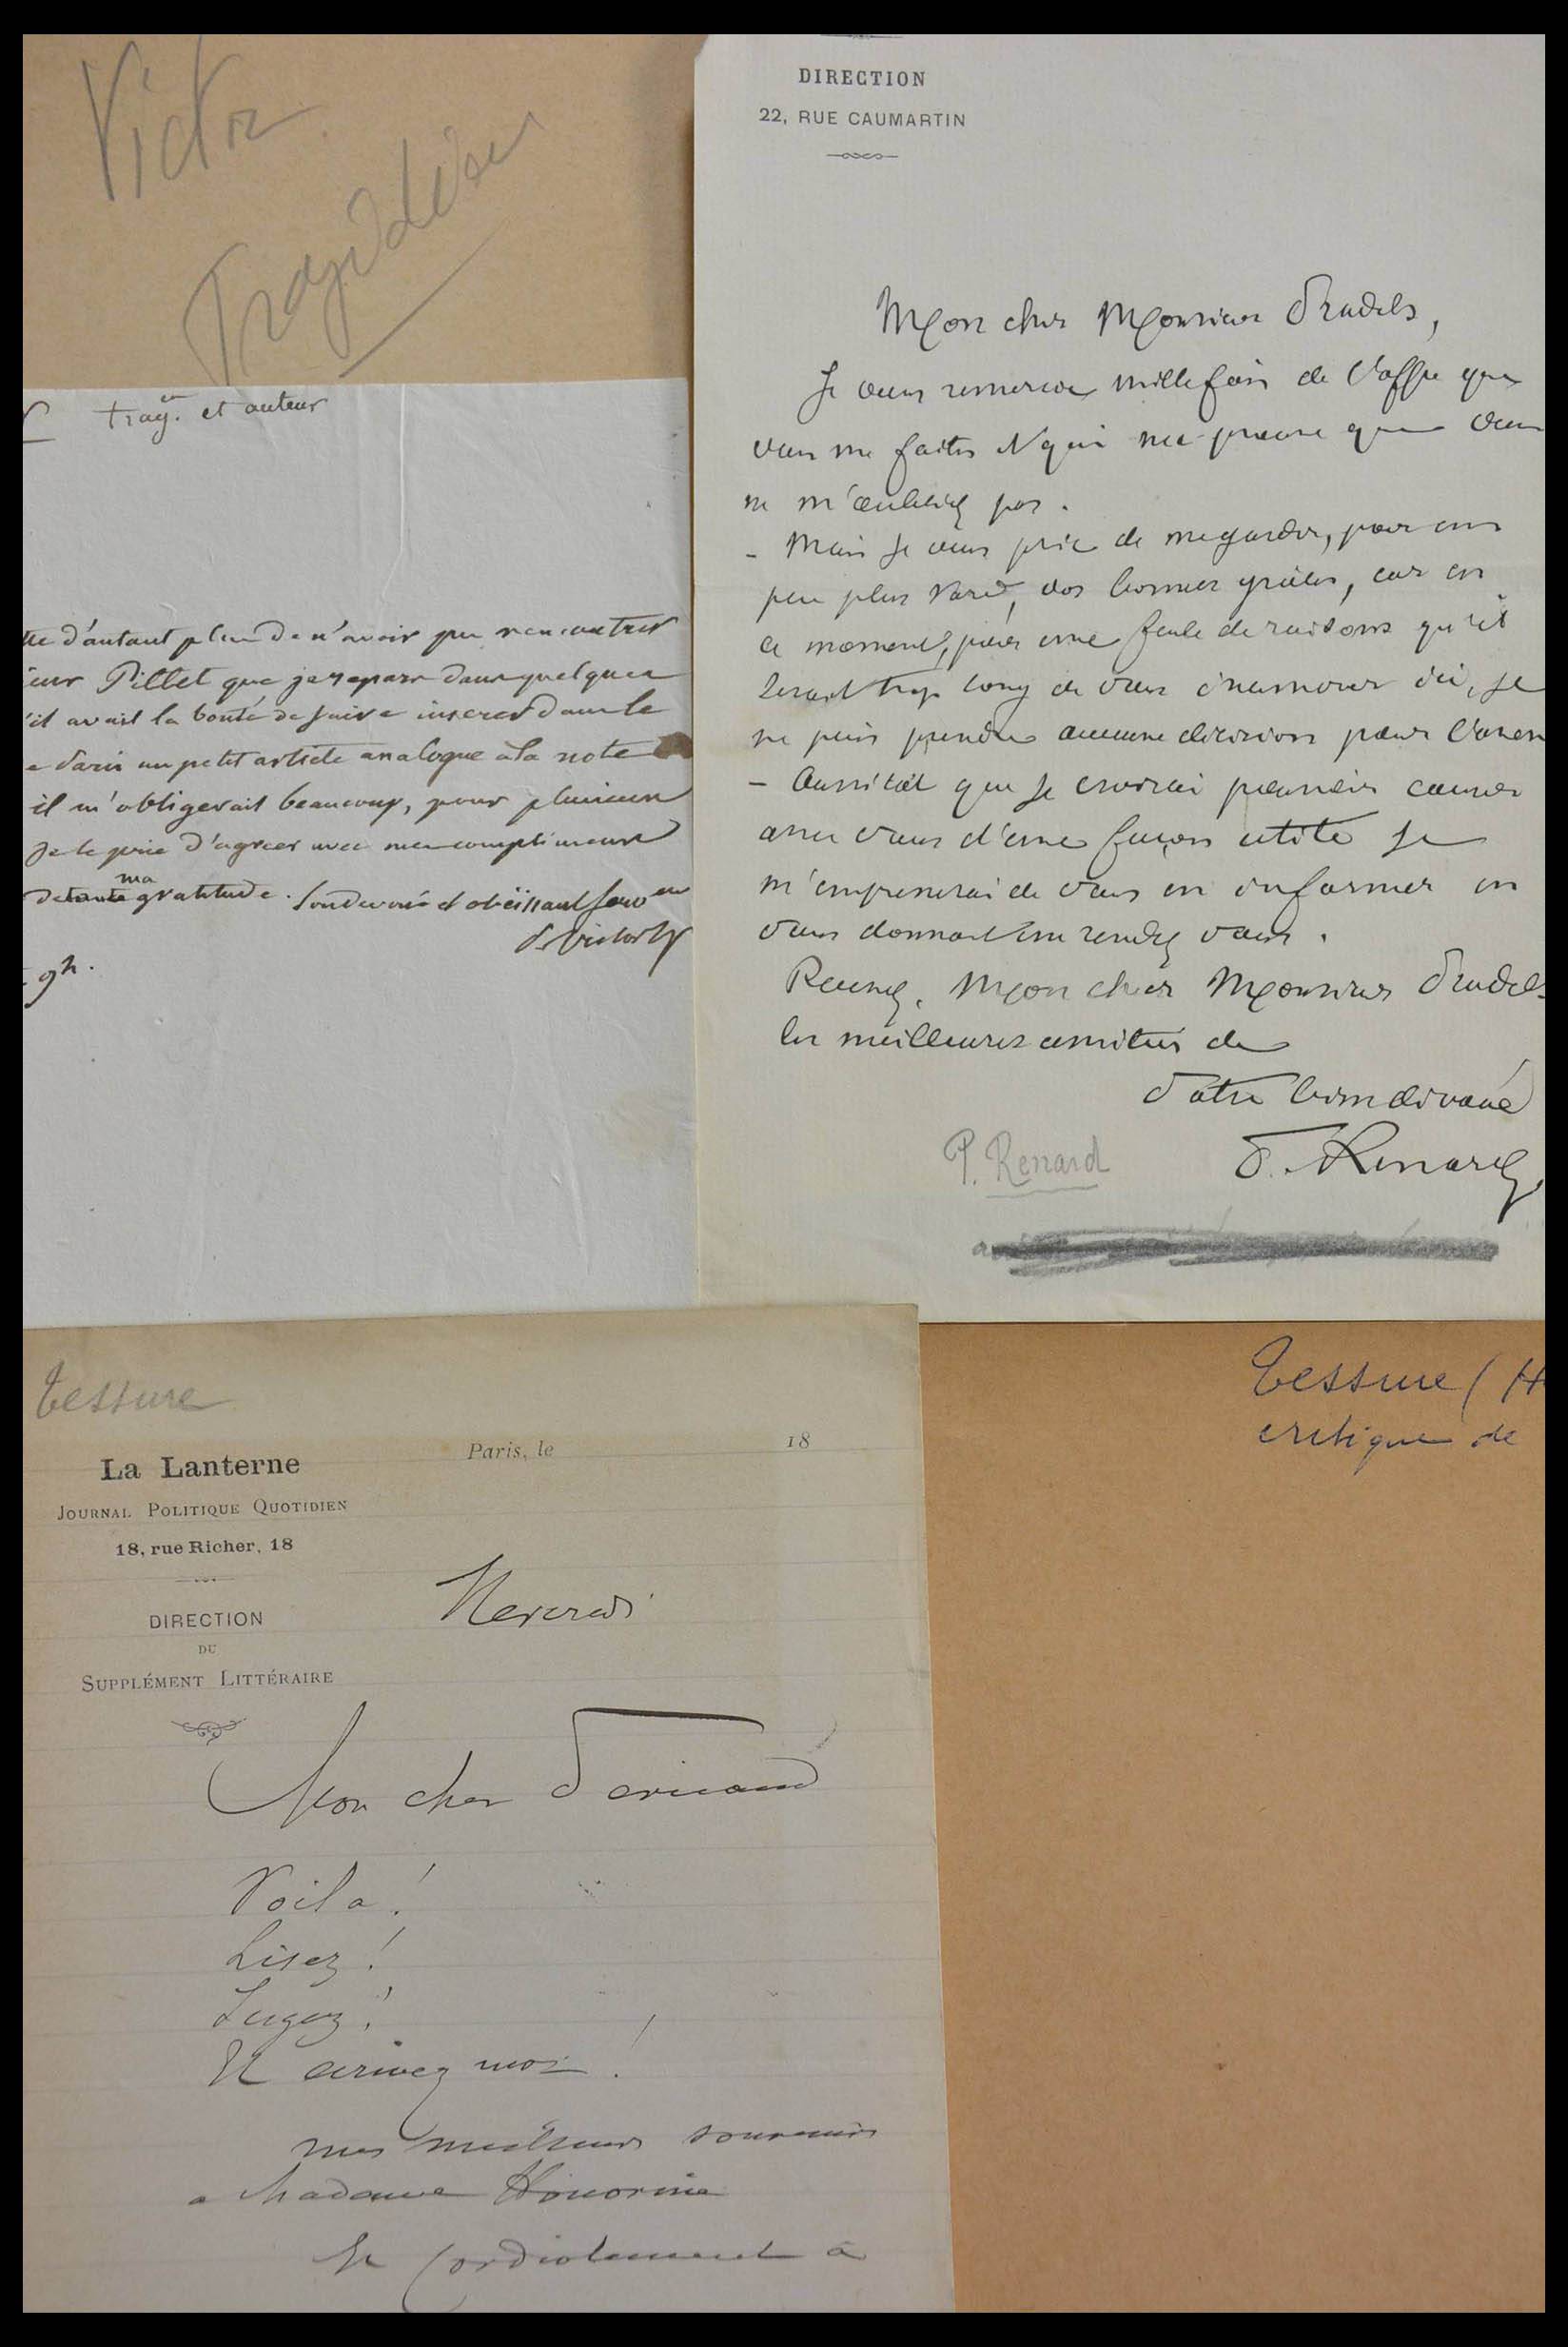 Victor
Tragédien
trag.en et auteur
tte d'autant plus de n'avoir pu rencontrer
ieur Pillet que je repars dans quelques
s'il avait la bonté de faire inserer dans le
un petit article analogue à la note
il m'obligerait beaucoup, pour plusieurs
Je le prie d'agréer avec mes compliments
ma
de toute gratitude. Son dévoué et obéissant serv
9h.
DIRECTION
22, RUE CAUMARTIN
Mon cher Monsieur
Je vous remercie mille fois de l'offre que
vous me faites et qui me prouve que vous
ne m'oubliez pas.
- Mais je vous prie de me garder, pour un
peu plus tard, vos bonnes grâces, car en
ce moment, pour une foule de raisons qu'il
serait trop long de vous énumérer ici, je
ne puis prendre aucune décision pour l'aven
- Aussitôt que je croirai pouvoir causer
avec vous d'une façon utile je
m'empresserai de vous en informer en
vous donnant un rendez vous.
Recevez, Mon cher Monsieur
les meilleures amitiés de
Votre bien dévoué
P. Renard
Renard
Tessure
La Lanterne
JOURNAL POLITIQUE QUOTIDIEN
18, rue Richer, 18
DIRECTION
DU
SUPPLÉMENT LITTÉRAIRE
Paris, le 18
Mercredi
Mon cher
Voila!
Lisez!
Jugez!
Et écrivez moi!
mes meilleurs souvenirs
a Madame Honorine
Et Cordialement à
Tessure (H
critique de